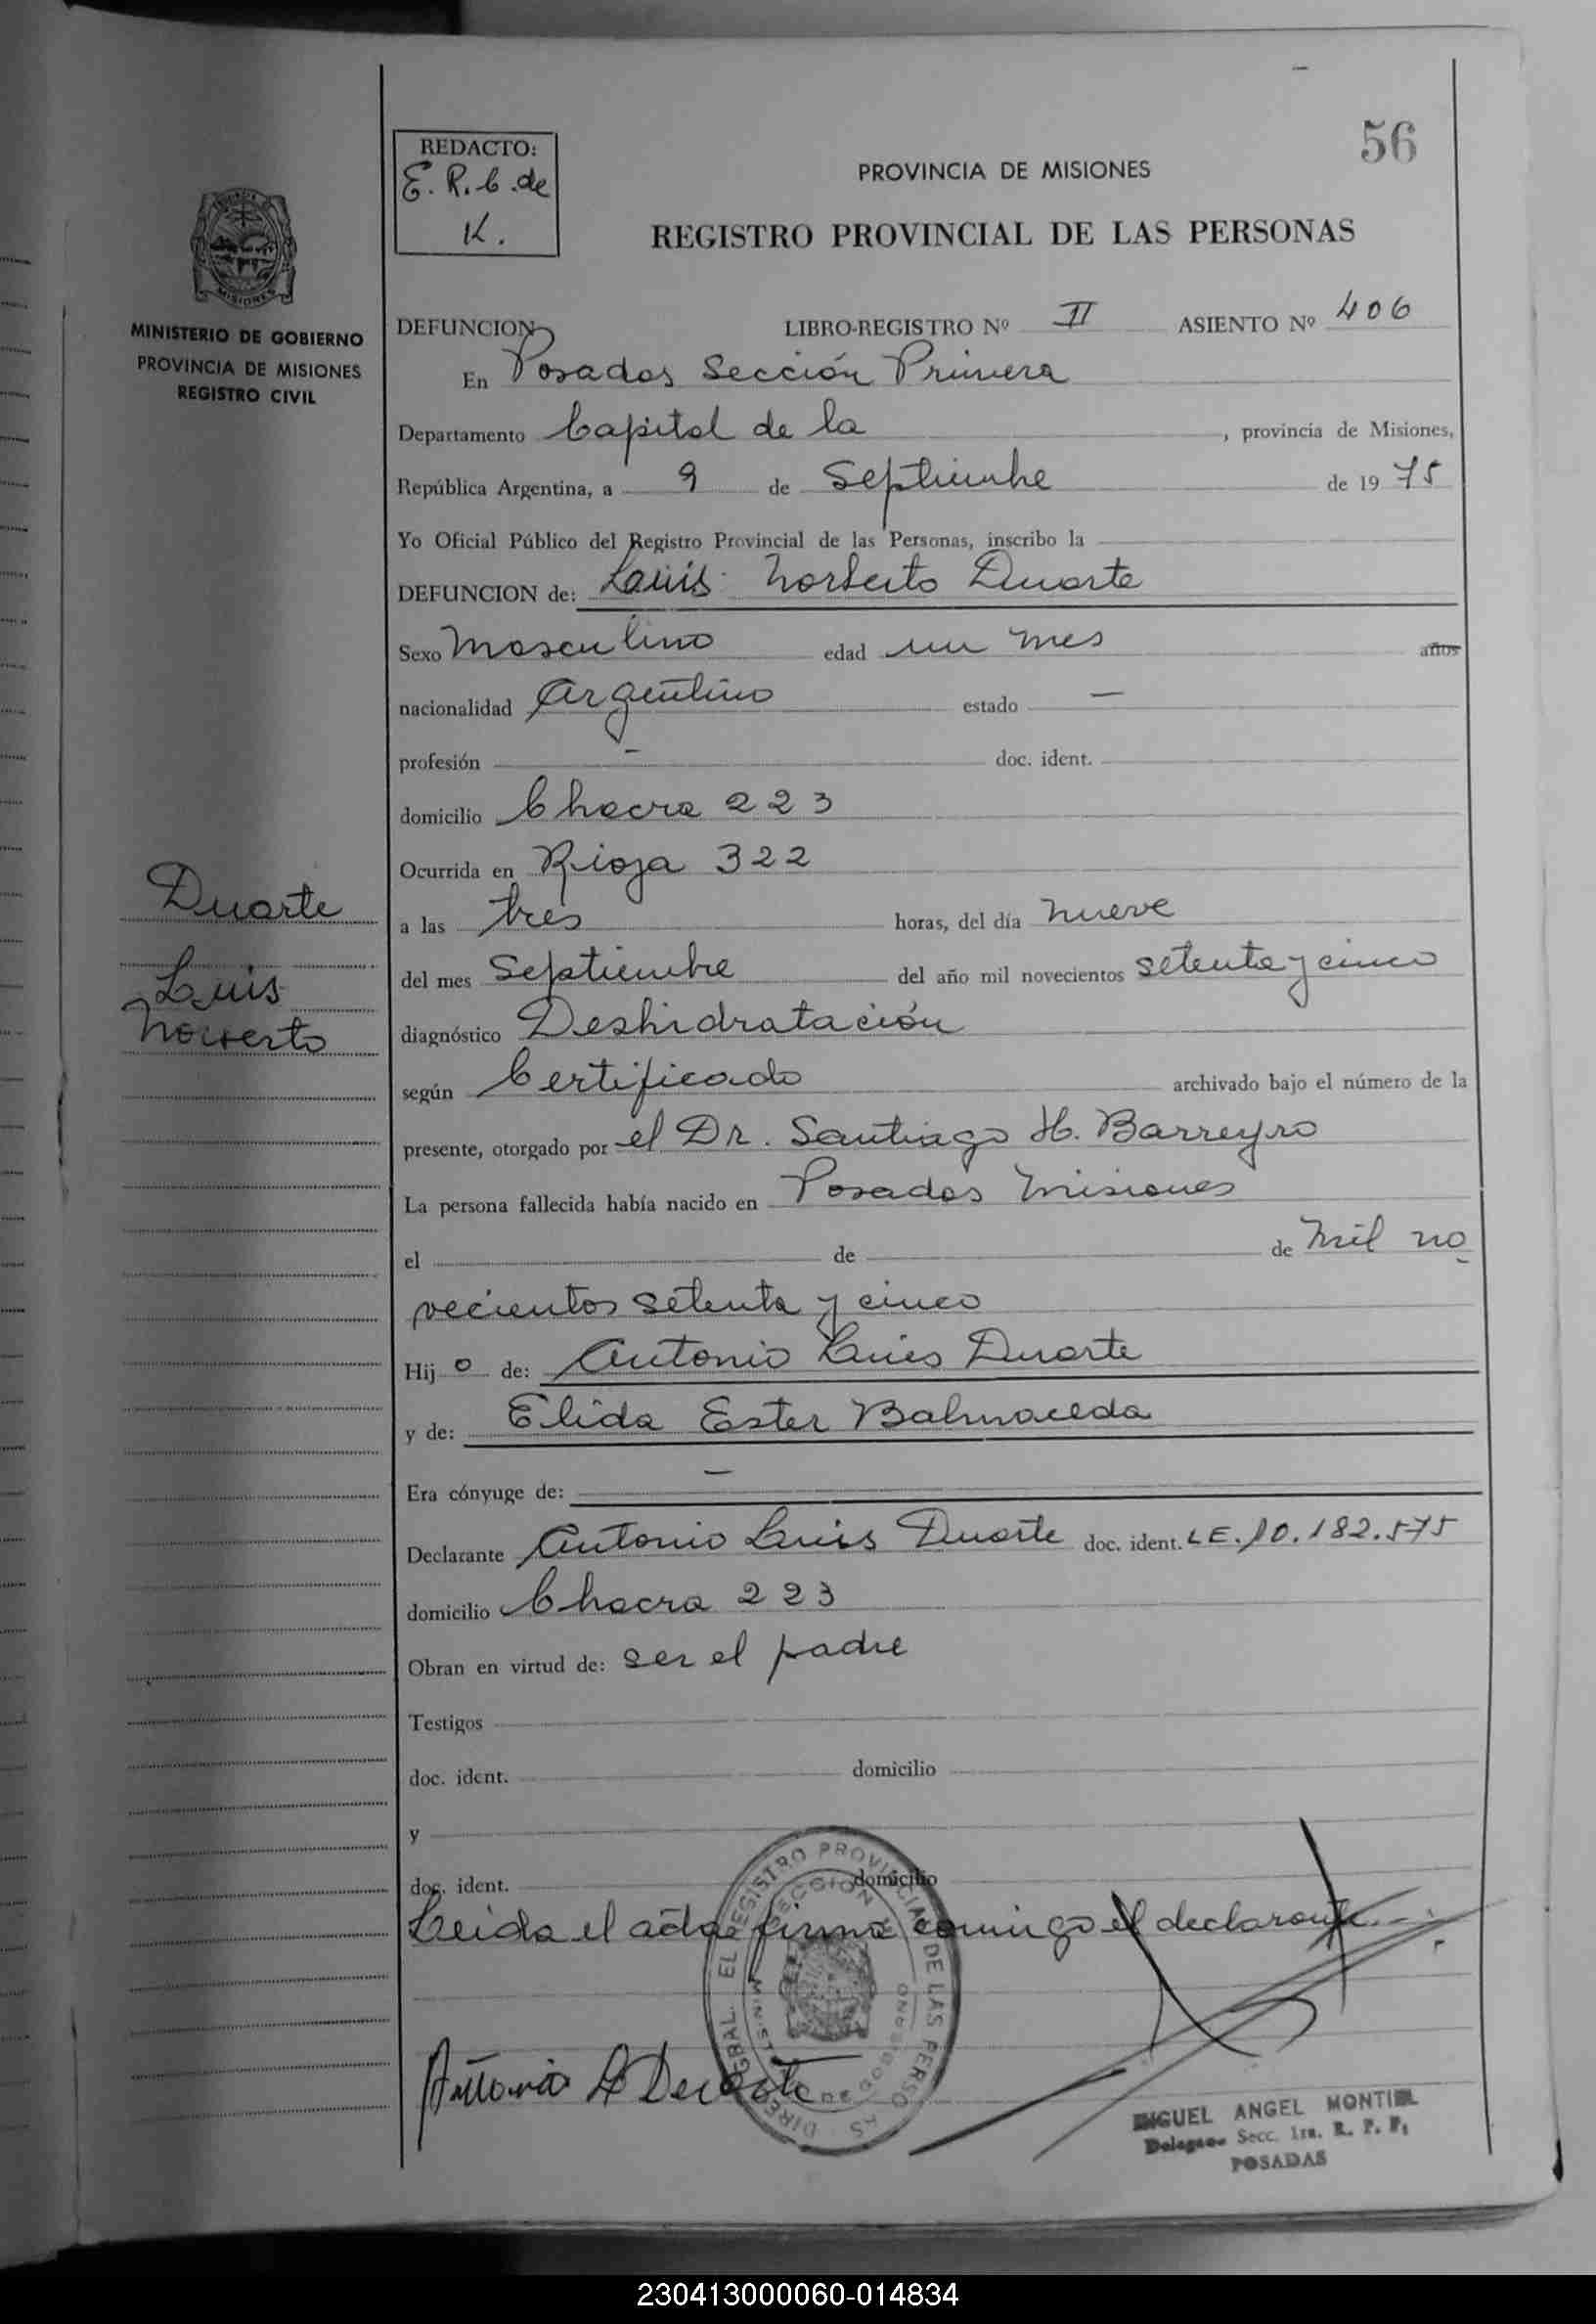 56
REDACTO:
E. R. C. de
K.
PROVINCIA DE MISIONES
REGISTRO PROVINCIAL DE LAS PERSONAS
MISIONES
MINISTERIO DE GOBIERNO
PROVINCIA DE MISIONES
REGISTRO CIVIL
DEFUNCION LIBRO-REGISTRO Nº II ASIENTO Nº 406
En Posadas Sección Primera
Departamento Capital de la , provincia de Misiones,
República Argentina, a 9 de Septiembre de 1975
Yo Oficial Público del Registro Provincial de las Personas, inscribo la
DEFUNCION de: Luis Norberto Duarte
Sexo Masculino edad un mes años
nacionalidad Argentino estado —
profesión — doc. ident.
domicilio Chacra 223
Ocurrida en Rioja 322
a las tres horas, del día nueve
del mes Septiembre del año mil novecientos setenta y cinco
diagnóstico Deshidratación
según Certificado archivado bajo el número de la
presente, otorgado por el Dr. Santiago H. Barreyro
La persona fallecida había nacido en Posadas Misiones
el de de mil no
vecientos setenta y cinco
Hijo de: Antonio Luis Duarte
y de: Elida Ester Balmaceda
Era cónyuge de: —
Declarante Antonio Luis Duarte doc. ident. LE. 10.182.575
domicilio Chacra 223
Obran en virtud de: ser el padre
Testigos
doc. ident. domicilio
y
doc. ident. domicilio
Leida el acta firma conmigo el declarante.-
Duarte
Luis
Norberto
Antonio L Duarte
DIRE GRAL. EL REGISTRO PROVINCIAL DE LAS PERSO AS
SECCION
MINIST DE GOBIERNO
MIGUEL ANGEL MONTIEL
Delegado Secc. 1ra. R. P. P.
POSADAS
230413000060-014834